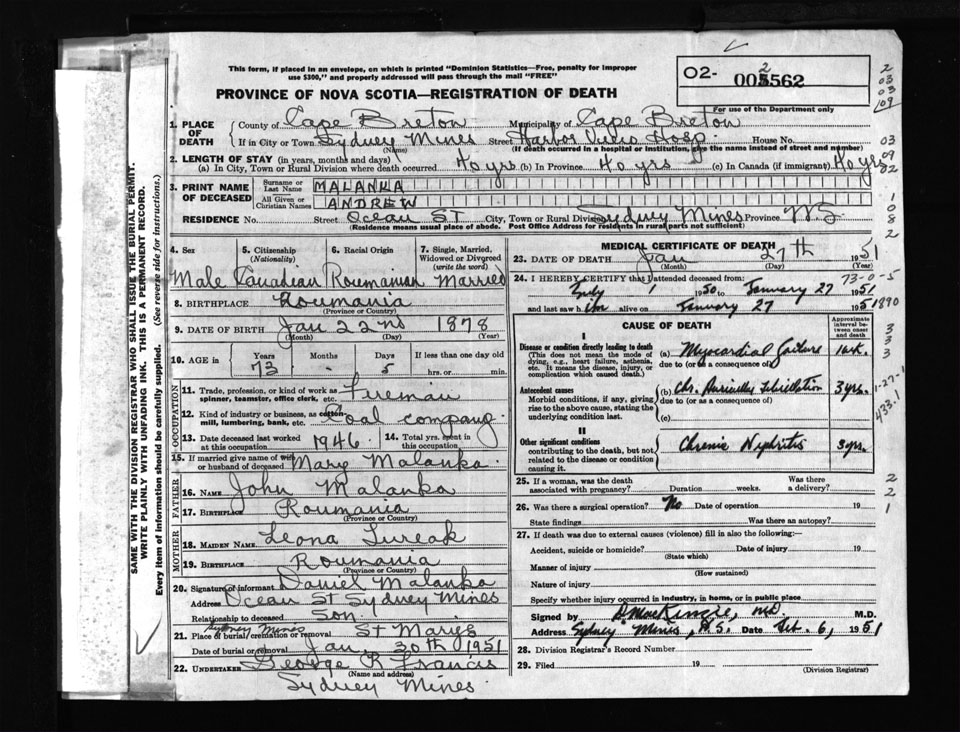 This form, if placed in an envelope, on which is printed "Dominion Statistics—Free, penalty for improper
use $300," and properly addressed will pass through the mail "FREE"
PROVINCE OF NOVA SCOTIA—REGISTRATION OF DEATH
02-
2
005562
For use of the Department only
1. PLACE OF DEATH
County of Cape Breton Municipality of Cape Breton
If in City or Town Sydney Mines Street Harbor View Hosp. House No.
(Name) (If death occurred in a hospital or institution, give the name instead of street and number)
2. LENGTH OF STAY (in years, months and days)
(a) In City, Town or Rural Division where death occurred 40 yrs (b) In Province 40 yrs (c) In Canada (if immigrant) 40 yrs
3. PRINT NAME OF DECEASED
Surname or Last Name MALANKA
All Given or Christian Names ANDREW
RESIDENCE No. Street Ocean St City, Town or Rural Division Sydney Mines Province N.S
(Residence means usual place of abode. Post Office Address for residents in rural parts not sufficient)
4. Sex
Male
5. Citizenship
(Nationality)
Canadian
6. Racial Origin
Roumanian
7. Single, Married,
Widowed or Divorced
(write the word)
Married
8. BIRTHPLACE Roumania
(Province or Country)
9. DATE OF BIRTH Jan 22nd 1878
(Month) (Day) (Year)
10. AGE in
Years Months Days If less than one day old
73 - 5 hrs. or min.
OCCUPATION
11. Trade, profession or kind of work as
spinner, teamster, office clerk, etc. Fireman
12. Kind of industry or business, as cotton
mill, lumbering, bank, etc. Coal company
13. Date deceased last worked
at this occupation 1946
14. Total yrs. spent in
this occupation
15. If married give name of wife
or husband of deceased Mary Malanka
FATHER
16. NAME John Malanka
17. BIRTHPLACE Roumania
(Province or Country)
MOTHER
18. MAIDEN NAME Leona
19. BIRTHPLACE Roumania
(Province or Country)
20. Signature of informant Daniel Malanka
Address Ocean St Sydney Mines
Relationship to deceased Son
Sydney Mines
21. Place of burial, cremation or removal St Mary's
Date of burial or removal Jan 30th 1951
22. UNDERTAKER George R Francis
(Name and address)
Sydney Mines
MEDICAL CERTIFICATE OF DEATH
23. DATE OF DEATH Jan 27th 1951
(Month) (Day) (Year)
73-0-5
24. I HEREBY CERTIFY that I attended deceased from:
July 1 1950 to January 27 1951
and last saw him alive on January 27 1951
CAUSE OF DEATH
Approximate
interval between
onset
and death
I
Disease or condition directly leading to death
(This does not mean the mode of
dying, e.g., heart failure, asthenia,
etc. It means the disease, injury, or
complication which caused death.)
(a) Myocardial failure 1 wk.
due to (or as a consequence of)
Antecedent causes
Morbid conditions, if any, giving
rise to the above cause, stating the
underlying condition last.
(b) Chr. Auricular Fibrillation 3 yrs.
due to (or as a consequence of)
(c)
II
Other significant conditions
contributing to the death, but not
related to the disease or condition
causing it.
Chronic Nephritis 3 yrs.
25. If a woman, was the death
associated with pregnancy? Duration weeks. Was there
a delivery?
26. Was there a surgical operation? No Date of operation 19
State findings Was there an autopsy?
27. If death was due to external causes (violence) fill in also the following:—
Accident, suicide or homicide? Date of injury 19
(State which)
Manner of injury
(How sustained)
Nature of injury
Specify whether injury occurred in industry, in home, or in public place
Signed by D. MacKinzie, M.D. M.D.
Address Sydney Mines, N.S. Date Feb. 6, 1951
28. Division Registrar's Record Number
29. Filed 19
(Division Registrar)
SAME WITH THE DIVISION REGISTRAR WHO SHALL ISSUE THE BURIAL PERMIT.
WRITE PLAINLY WITH UNFADING INK. THIS IS A PERMANENT RECORD.
Every item of information should be carefully supplied. (See reverse side for instructions.)
2
03
03
109
03
09
02
1
0
8
2
1890
3
3
3
1-27-1
433.1
2
2
1